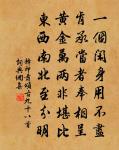 一個閑身用不盡
肯承當者奉相呈
黃金萬兩非堪比
東西南北至分明
頌古九十八首
詞典網集